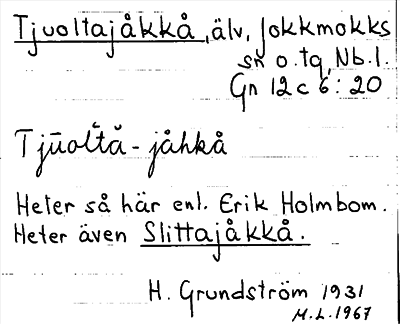 Tjuoltajåkkå, älv, Jokkmokks
sn o. tg, Nb.l.
Gn 12 c 6:20
Tjūoltă - jåhkå
Heter så här enl. Erik Holmbom.
Heter även Slittajåkkå.
H. Grundström 1931
M.L. 1967